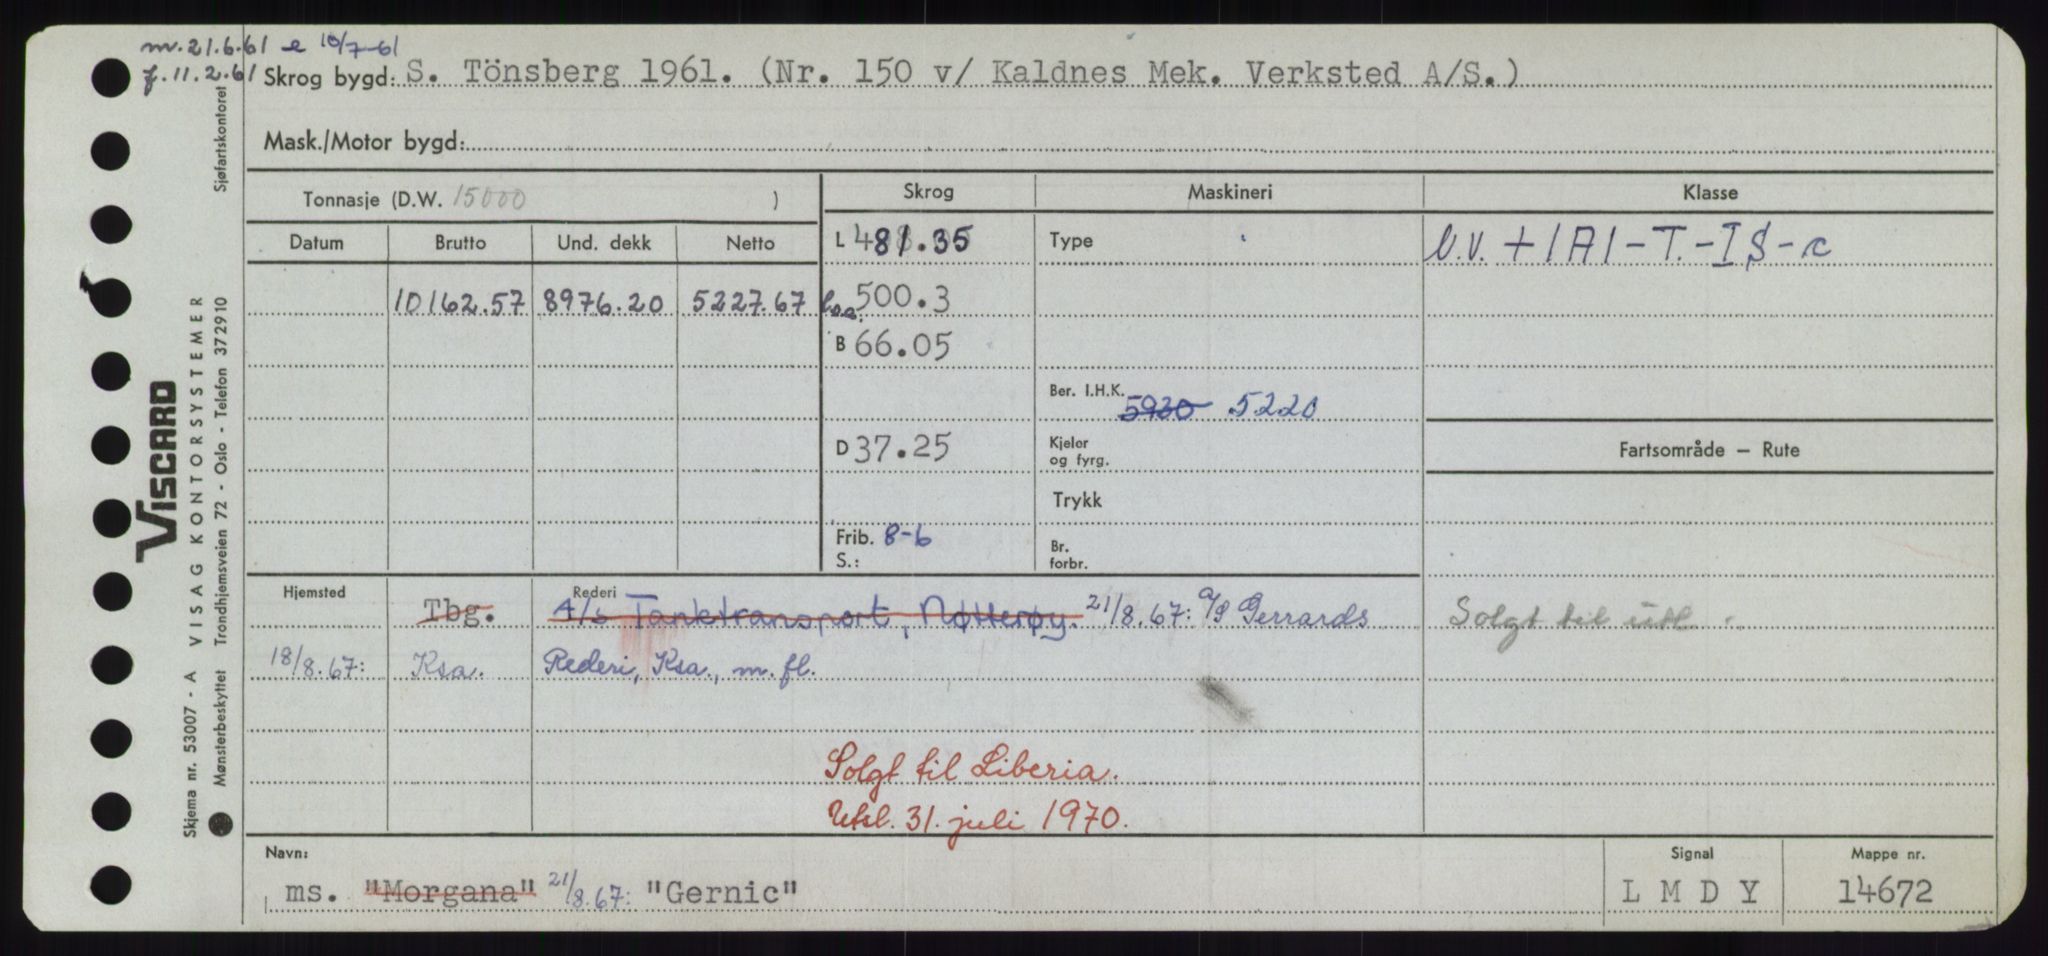 m. 21.6.61 e 10/7-61
f. 11.2.61
Skrog bygd: S. Tönsberg 1961. (Nr. 150 v/ Kaldnes Mek. Verksted A/S.)
Mask./Motor bygd:
Tonnasje (D.W. 15000 )
Skrog
Maskineri
Klasse
Datum
Brutto
Und. dekk
Netto
L 481.35
Type
+1A1-T.-IS-c
10162.57 8976.20 5227.67
loa. 500.3
B 66.05
Ber. I.H.K. 5930 5220
D 37.25
Kjeler og fyrg.
Fartsområde — Rute
Trykk
Frib. 8-6
S.:
Br. forbr.
Hjemsted
Rederi
Tbg. A/S Tanktransport, Nøtterøy. 21/8.67: A/S Gerrards
Solgt til utl.
18/8.67: Ksa. Rederi, Ksa., m.fl.
Solgt til Liberia.
Utsl. 31. juli 1970.
Navn:
Signal
Mappe nr.
ms. "Morgana" 21/8.67: "Gernic"
L M D Y
14672
VISCARD
Skjema nr. 53007 - A VISAG KONTORSYSTEMER
Mønsterbeskyttet Trondhjemsveien 72 - Oslo - Telefon 372910 Sjøfartskontoret